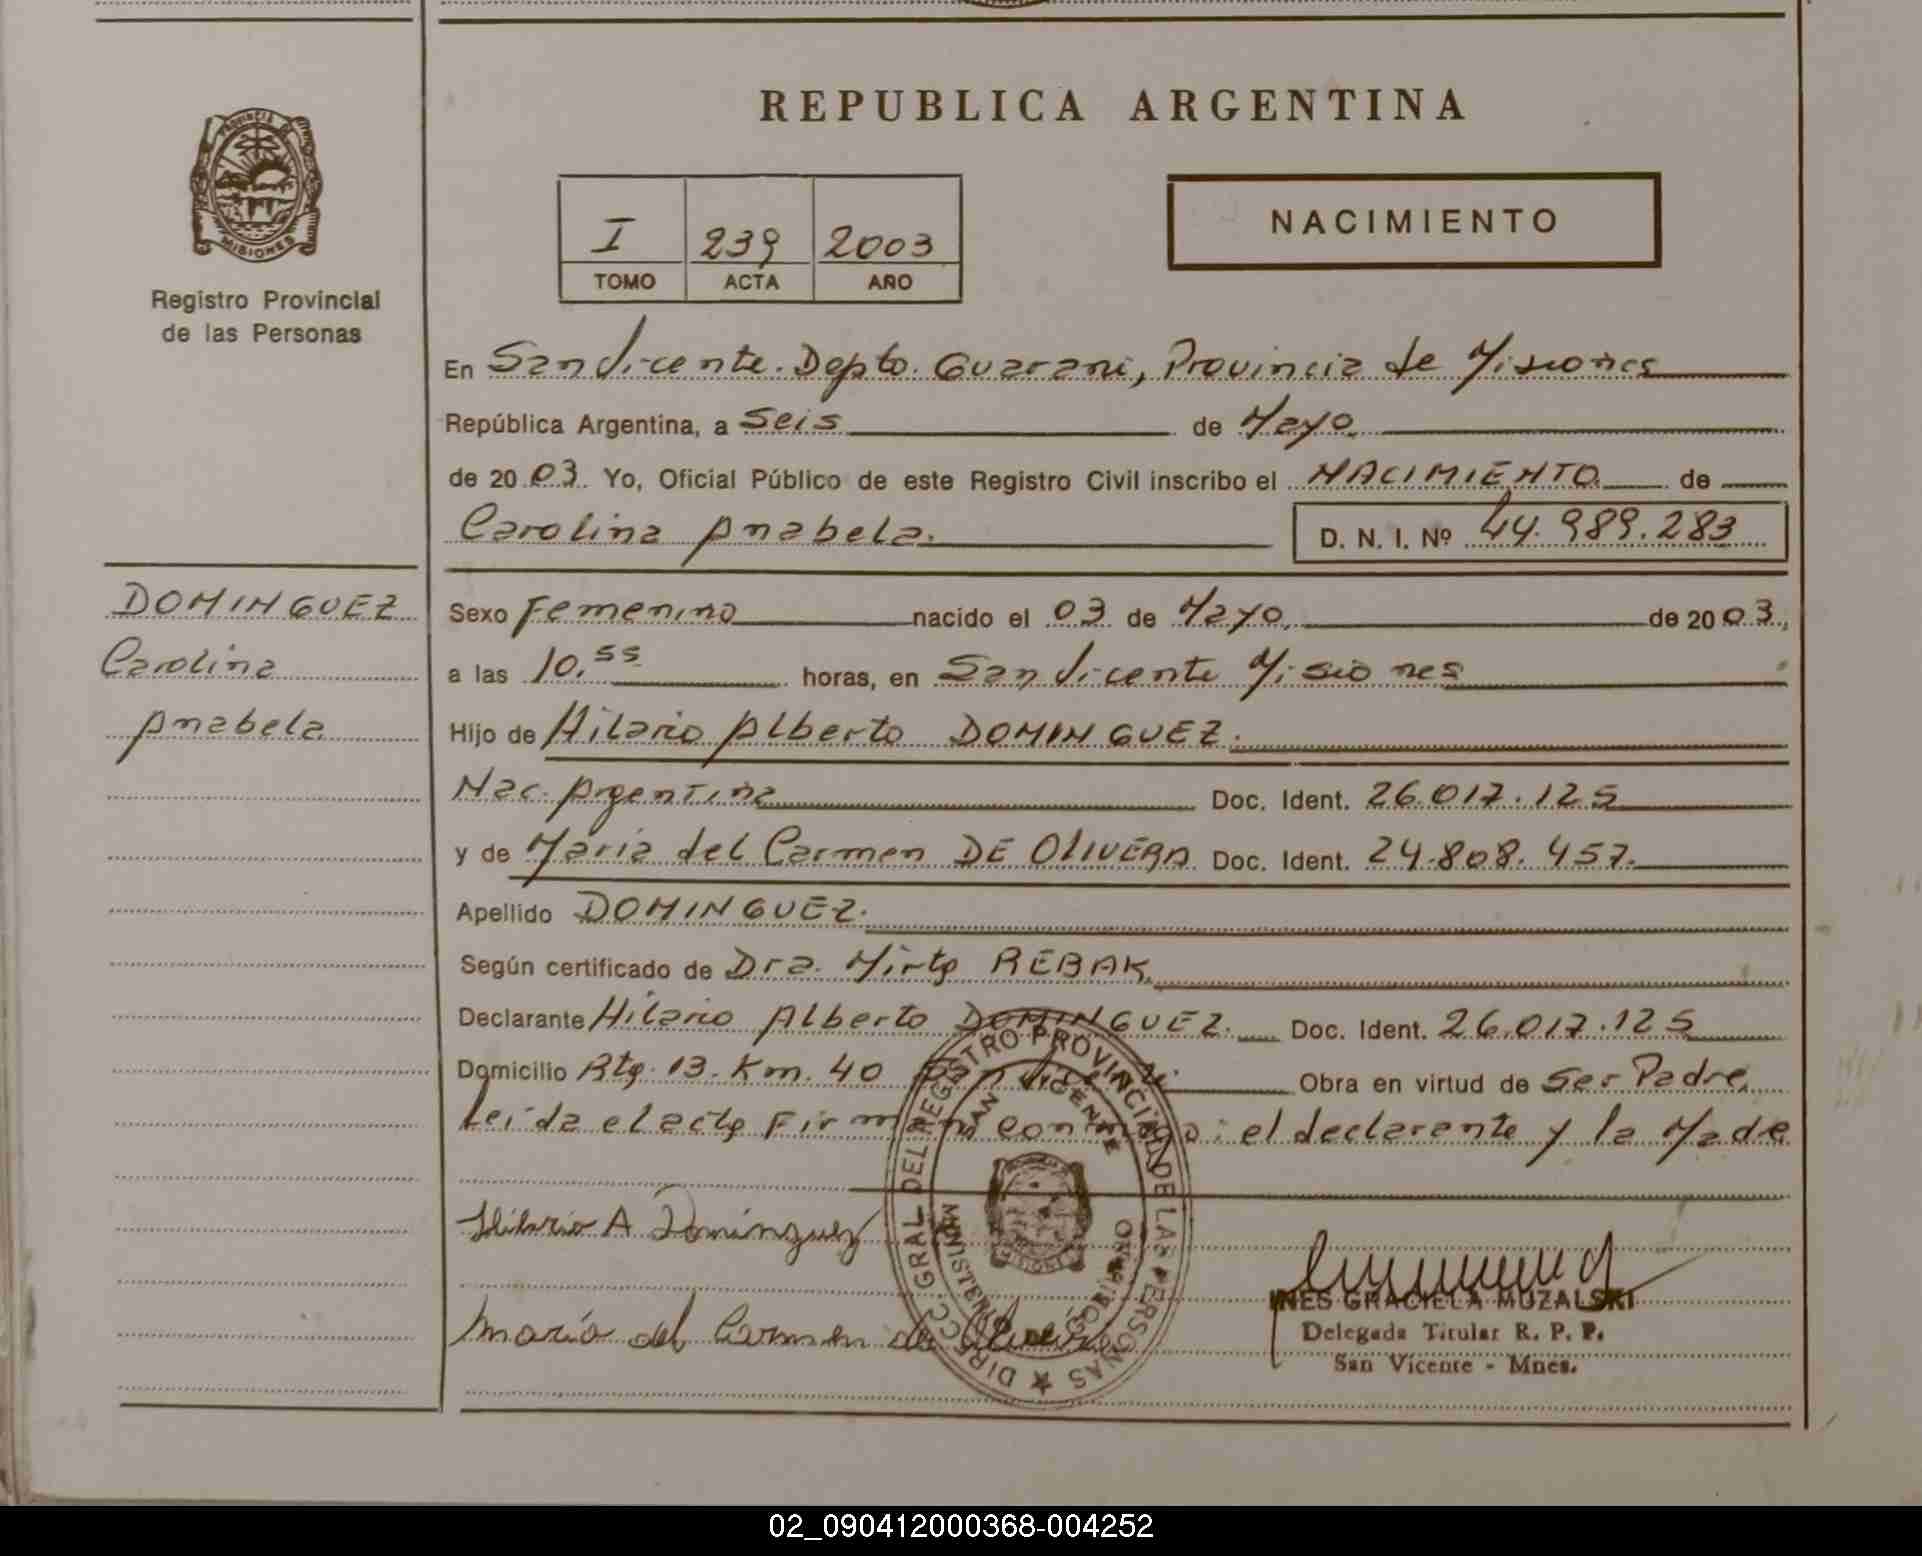 REPUBLICA ARGENTINA
PROVINCIA DE
MISIONES
Registro Provincial
de las Personas
I 239 2003
TOMO ACTA AÑO
NACIMIENTO
En San Vicente. Depto. Guarani, Provincia de Misiones
República Argentina, a Seis de Mayo
de 2003. Yo, Oficial Público de este Registro Civil inscribo el NACIMIENTO de
Carolina Anabela. D. N. I. Nº 44.989.283
DOMINGUEZ
Carolina
Anabela
Sexo Femenino nacido el 03 de Mayo de 2003,
a las 10.55 horas, en San Vicente Misiones
Hijo de Hilario Alberto DOMINGUEZ.
Nac. Argentina Doc. Ident. 26.017.125
y de Maria del Carmen DE OLIVERA Doc. Ident. 24.808.457.
Apellido DOMINGUEZ.
Según certificado de Dra. Mirta REBAK
Declarante Hilario Alberto DOMINGUEZ. Doc. Ident. 26.017.125
Domicilio Rta. 13. Km. 40 San Vicente. Obra en virtud de Ser Padre
Leida el acta Firman conmigo: el declarante y la Madre
DIRECC. GRAL. DEL REGISTRO PROVINCIAL DE LAS PERSONAS
SAN VICENTE
MINISTERIO GOBIERNO
MISIONES
Hilario A Dominguez
Maria del Carmen de Olivera
INES GRACIELA MUZALSKI
Delegada Titular R. P. P.
San Vicente - Mnes.
02_090412000368-004252